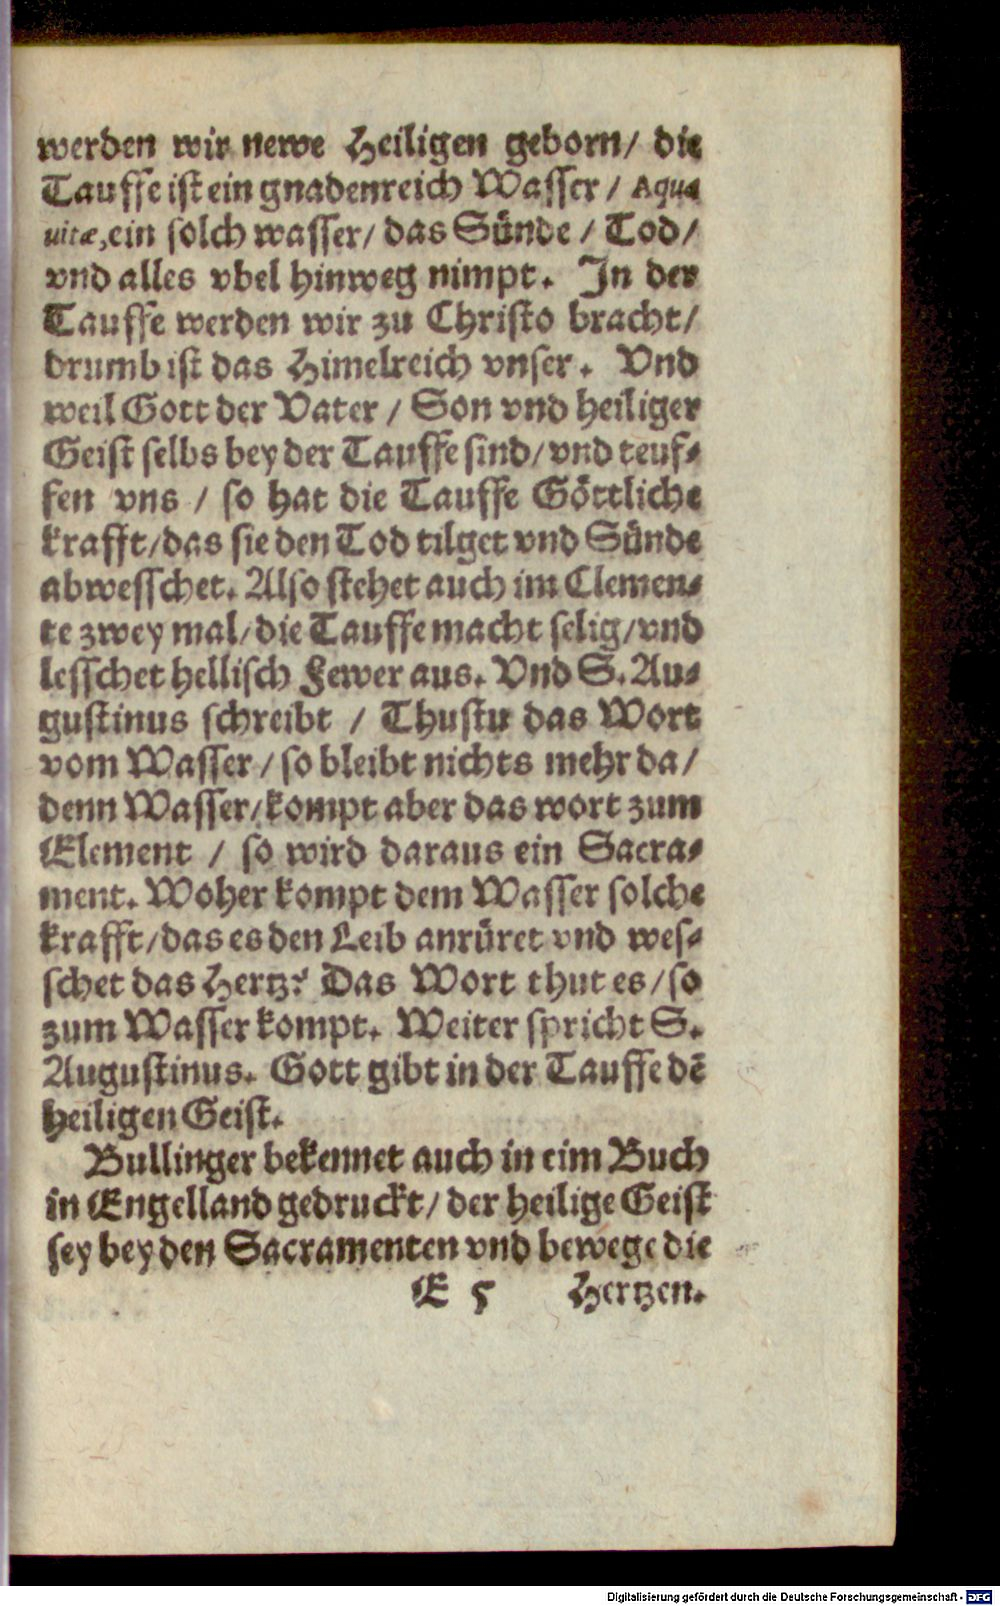 werden wir newe Heiligen geborn/ die
Tauffe ist ein gnadenreich Wasser / Aqua
uitæ, ein solch wasser/ das Sünde / Tod/
vnd alles vbel hinweg nimpt. In der
Tauffe werden wir zu Christo bracht/
drumb ist das Himelreich vnser. Vnd
weil Gott der Vater / Son vnd heiliger
Geist selbs bey der Tauffe sind/ vnd teuf-
fen vns / so hat die Tauffe Göttliche
krafft/ das sie den Tod tilget vnd Sünde
abwesschet. Also stehet auch im Clemen-
te zwey mal/ die Tauffe macht selig/ vnd
lesschet hellisch Fewer aus. Vnd S. Au-
gustinus schreibt / Thustu das Wort
vom Wasser / so bleibt nichts mehr da/
denn Wasser/ kompt aber das wort zum
Element / so wird daraus ein Sacra-
ment. Woher kompt dem Wasser solche
krafft/ das es den Leib anrüret vnd wes-
schet das Hertz? Das Wort thut es/ so
zum Wasser kompt. Weiter spricht S.
Augustinus. Gott gibt in der Tauffe dē
heiligen Geist.
Bullinger bekennet auch in eim Buch
in Engelland gedruckt/ der heilige Geist
sey bey den Sacramenten vnd bewege die
E 5 Hertzen.
Digitalisierung gefördert durch die Deutsche Forschungsgemeinschaft - DFG